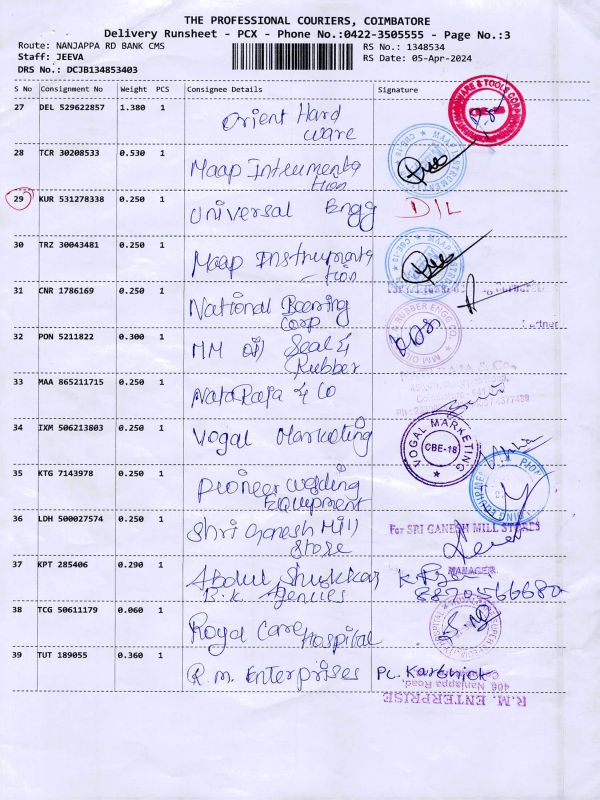 THE PROFESSIONAL COURIERS, COIMBATORE
Delivery Runsheet - PCX - Phone No.:0422-3505555 - Page No.:3
Route: NANJAPPA RD BANK CMS RS No.: 1348534
Staff: JEEVA RS Date: 05-Apr-2024
DRS No.: DCJB134853403
S No Consignment No Weight PCS Consignee Details Signature
27 DEL 529622857 1.380 1 Orient Hard
ware
28 TCR 30208533 0.530 1 Maap Intrumenta
tion
29 KUR 531278338 0.250 1 Universal Engg D/L
30 TRZ 30043481 0.250 1 Maap Instrumenta
tion
31 CNR 1786169 0.250 1 National Bearing
Corp
32 PON 5211822 0.300 1 MM Oil Seal &
Rubber
33 MAA 865211715 0.250 1 NataRaja & Co
34 IXM 506213803 0.250 1 Vogal Marketing
VOGAL MARKETING
CBE-18
35 KTG 7143978 0.250 1 Pioneer Welding
Equipment
36 LDH 500027574 0.250 1 Shri Ganesh Mill
Store
For SRI GANESH MILL STORES
MANAGER.
37 KPT 285406 0.290 1 Abdul Shukkar
R.K Agencies
38 TCG 50611179 0.060 1 Royal Care
Hospital
39 TUT 189055 0.360 1 R.M. Enterprises Pc. Karthick
406, Nanjappa Road,
R.M. ENTERPRISE